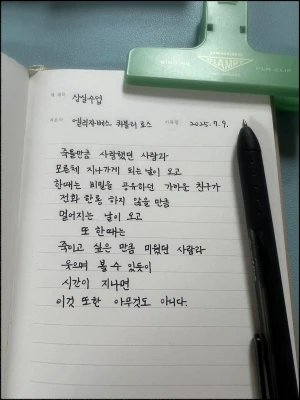 CLAMPY
책 제목 상실수업
글쓴이 엘리자베스 퀴블러 로스 기록일 2025. 9. 9.
죽을만큼 사랑했던 사람과
모른체 지나가게 되는 날이 오고
한때는 비밀을 공유하던 가까운 친구가
전화 한통 하지 않을 만큼
멀어지는 날이 오고
또 한때는
죽이고 싶은 만큼 미웠던 사람과
웃으며 볼 수 있듯이
시간이 지나면
이것 또한 아무것도 아니다.